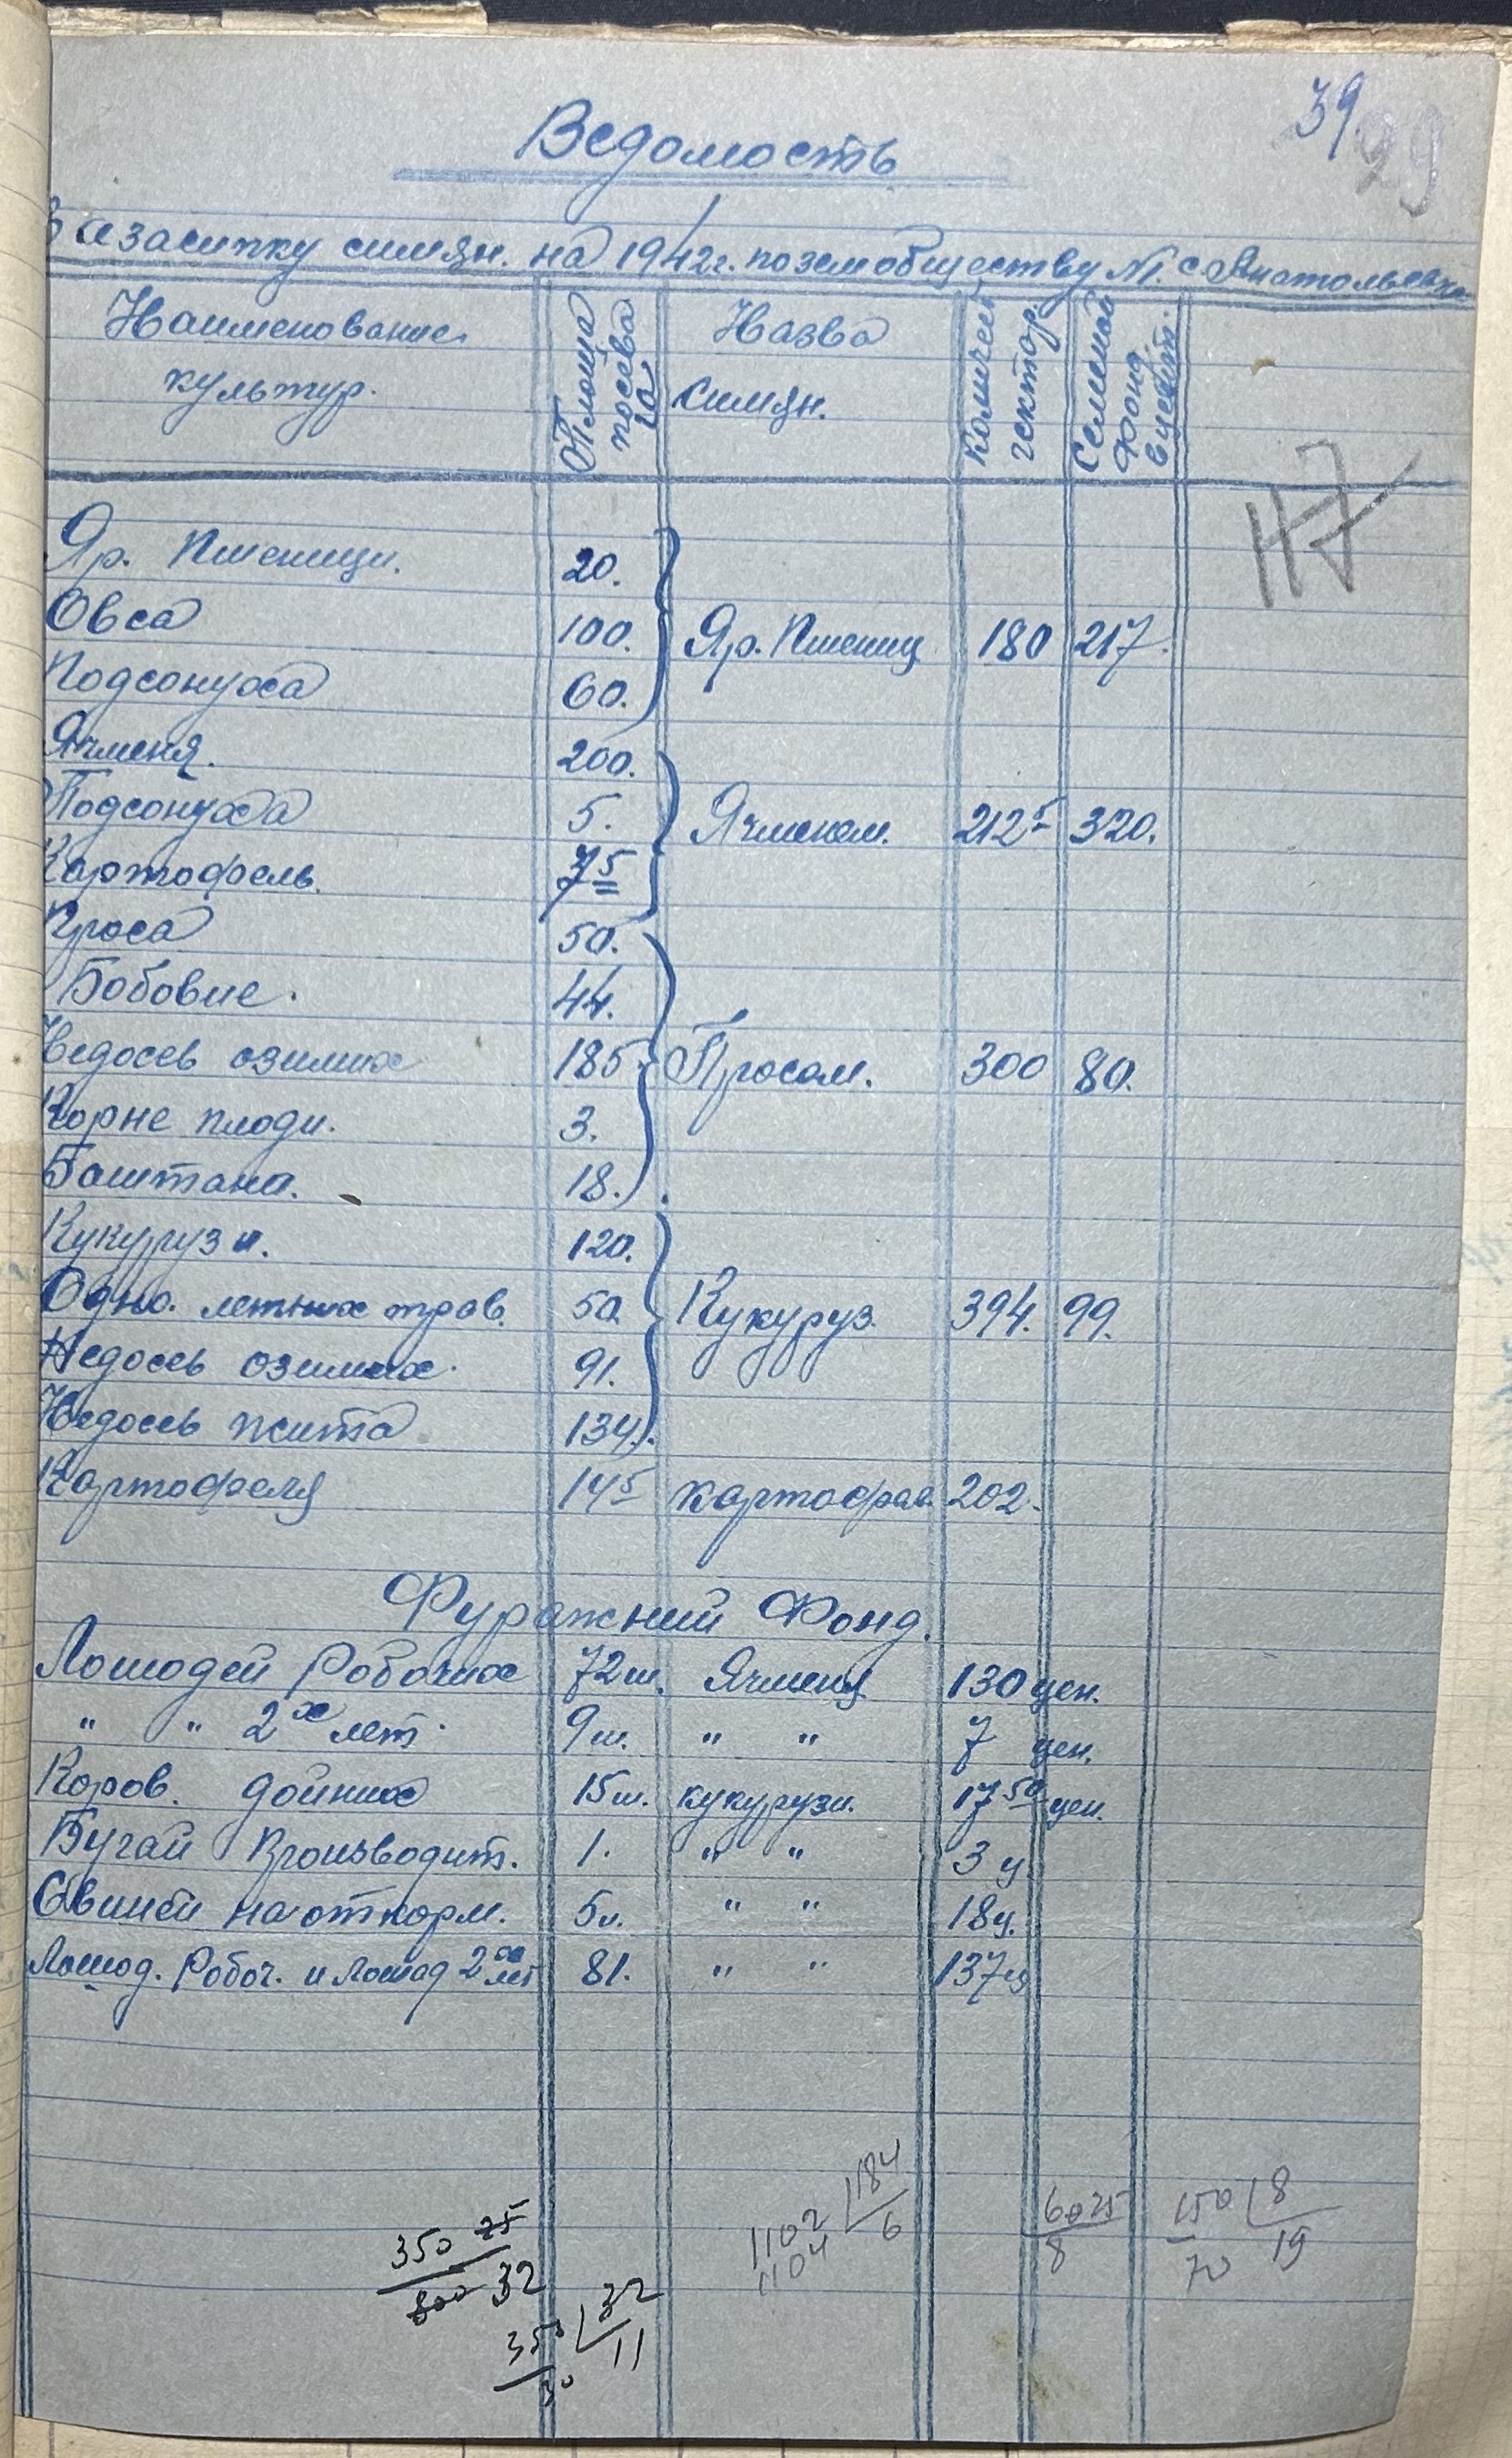 39 29
Ведомость
На засипку симян. на 1942г. по земобществу №1. с Анатольевка
Наименование культур. Площа посева га Назва симян. Количес гектор. Семеной Фонд. в цент.
117
Яр. Пшеници. 20.
Овса 100. Яр. Пшениц 180 217.
Подсонуха 60.
Ячменя. 200.
Подсонуха 5. Ячменем. 212⁵ 320.
Картофель. 7⁵
Проса 50.
Бобовие. 44.
Недосев озимих 185 Просом. 300 80.
Корне плоди. 3.
Баштана. 18.
Кукурузи. 120.
Одно. летних трав. 50 Кукуруз. 394. 99.
Недосев озимих. 91.
Недосев жита 134.
Картофеля 14⁵ картофел. 202.
Фуражний Фонд.
Лошодей Робочих 72ш. Ячменя 130 цен.
" " 2ˣ лет. 9ш. " " 7 цен.
Коров. дойних 15ш. кукурузи. 17⁵⁰ цен.
Бугай Производит. 1. " " 3 ц.
Свиней на откорм. 5ш. " " 18ц.
Лошод. Робоч. и Лошад 2ˣ лет 81. " " 137ц
350 25
800 32
350 32
30 11
1102 184
1104 6
6025
8
150 8
70 19